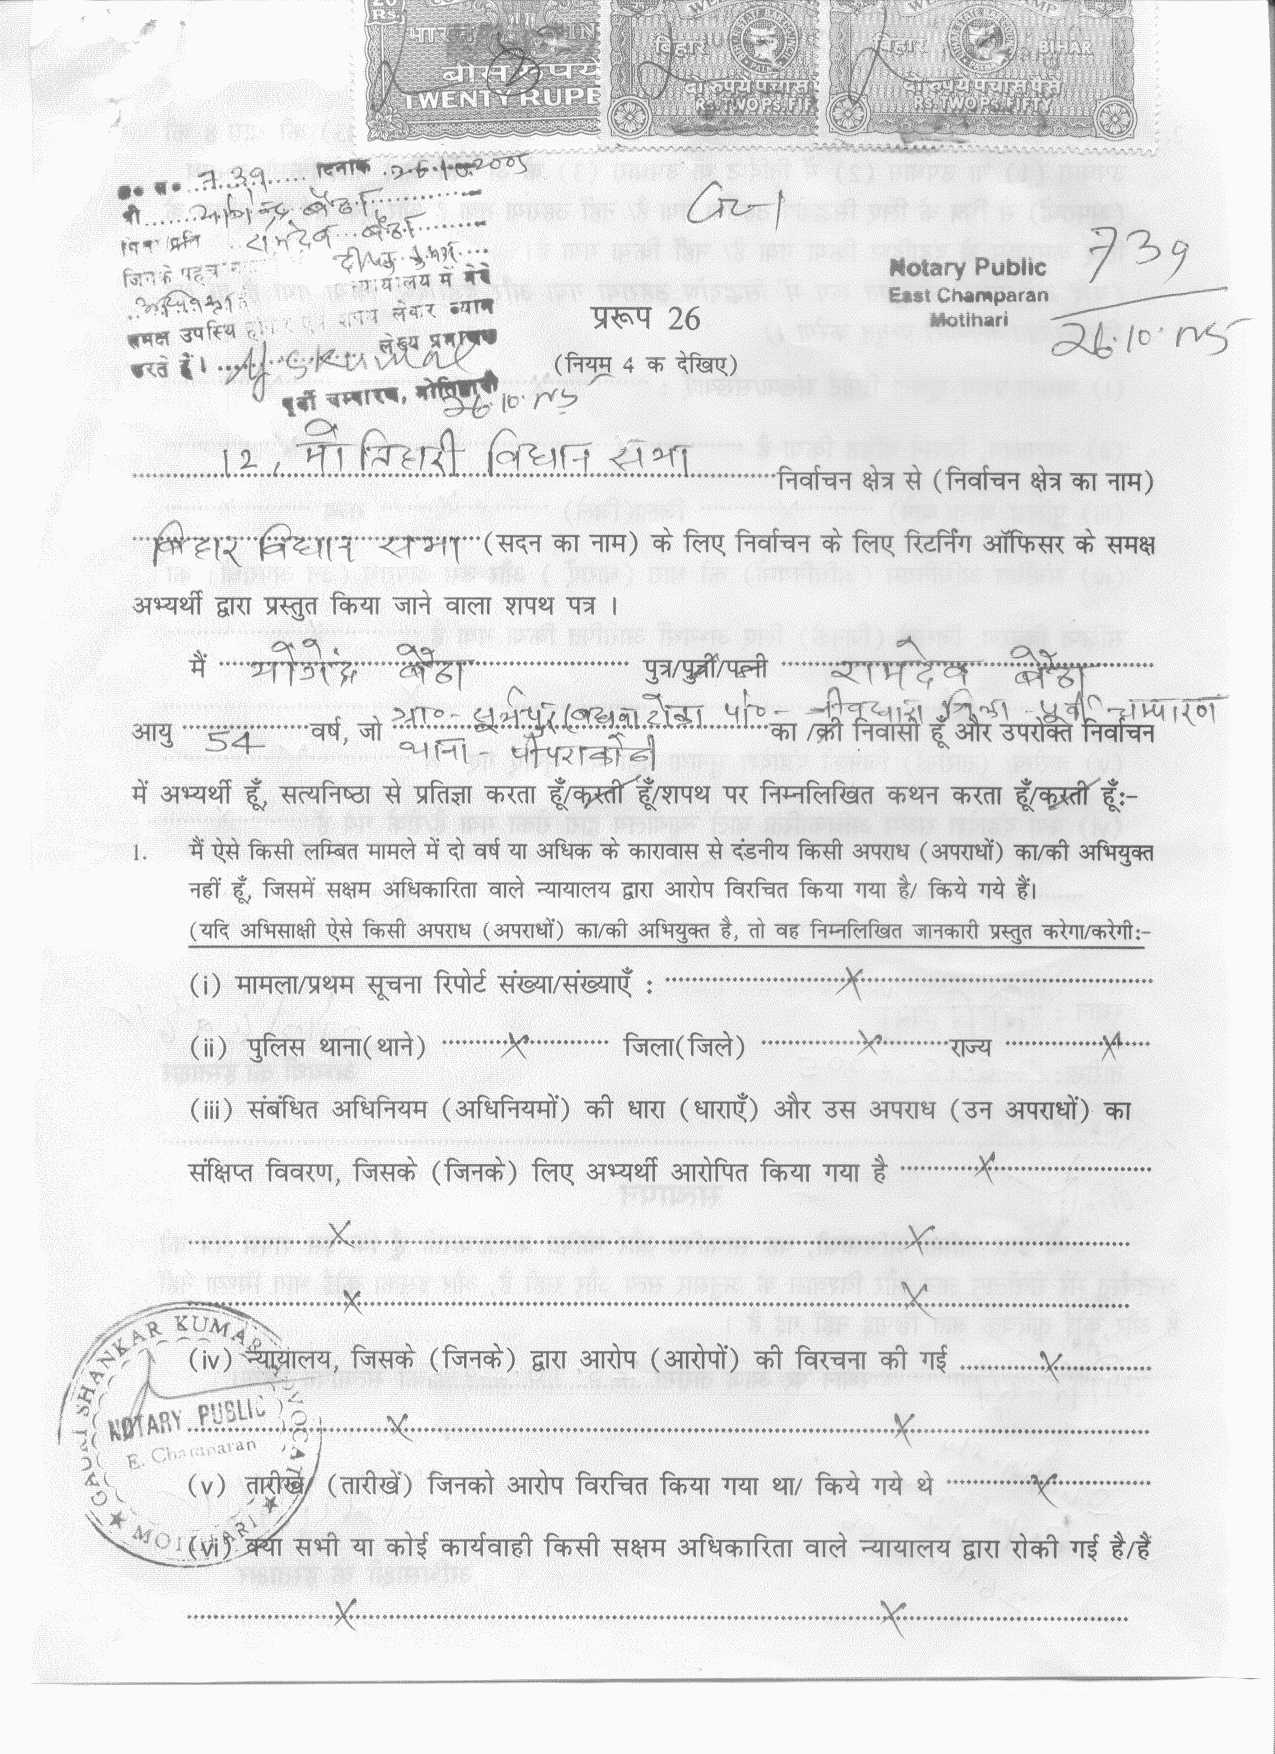 बीस रुपये
TWENTY RUPE
बिहार
दो रुपये पचास
Rs. TWO Ps. FIF
बिहार BIHAR
दो रुपये पचास पैसे
Rs. TWO Ps. FIFTY
739 दिनांक 26.10.2005
श्री योगेन्द्र बैठा
रामदेव बैठा
जिनके पहचान
न्यायालय में मेरे
समक्ष उपस्थित होकर एवं शपथ लेकर ब्यान
करते हैं। लेख्य प्रमाणक
पूर्वी चम्पारण, मोतिहारी
26.10.05
739
Notary Public
East Champaran
Motihari
26.10.05
प्ररूप 26
(नियम 4 क देखिए)
12, मोतिहारी विधान सभा निर्वाचन क्षेत्र से (निर्वाचन क्षेत्र का नाम)
बिहार विधान सभा (सदन का नाम) के लिए निर्वाचन के लिए रिटर्निंग ऑफिसर के समक्ष
अभ्यर्थी द्वारा प्रस्तुत किया जाने वाला शपथ पत्र ।
मैं योगेंद्र बैठा पुत्र/पुत्री/पत्नी रामदेव बैठा
आयु 54 वर्ष, जो ग्रा०- टोला पो०- जिला - पूर्वी चम्पारण का /की निवासी हूँ और उपरोक्त निर्वाचन
थाना - पीपराकोठी
में अभ्यर्थी हूँ, सत्यनिष्ठा से प्रतिज्ञा करता हूँ/करती हूँ/शपथ पर निम्नलिखित कथन करता हूँ/करती हूँ:-
1. मैं ऐसे किसी लम्बित मामले में दो वर्ष या अधिक के कारावास से दंडनीय किसी अपराध (अपराधों) का/की अभियुक्त
नहीं हूँ, जिसमें सक्षम अधिकारिता वाले न्यायालय द्वारा आरोप विरचित किया गया है/ किये गये हैं।
(यदि अभिसाक्षी ऐसे किसी अपराध (अपराधों) का/की अभियुक्त है, तो वह निम्नलिखित जानकारी प्रस्तुत करेगा/करेगी:-
(i) मामला/प्रथम सूचना रिपोर्ट संख्या/संख्याएँ : X
(ii) पुलिस थाना(थाने) X जिला(जिले) X राज्य X
(iii) संबंधित अधिनियम (अधिनियमों) की धारा (धाराएँ) और उस अपराध (उन अपराधों) का
संक्षिप्त विवरण, जिसके (जिनके) लिए अभ्यर्थी आरोपित किया गया है X
X X
X X
(iv) न्यायालय, जिसके (जिनके) द्वारा आरोप (आरोपों) की विरचना की गई X
X X
(v) तारीख/ (तारीखें) जिनको आरोप विरचित किया गया था/ किये गये थे X
(vi) क्या सभी या कोई कार्यवाही किसी सक्षम अधिकारिता वाले न्यायालय द्वारा रोकी गई है/हैं
X X
GAURI SHANKAR KUMAR ADVOCATE
NOTARY PUBLIC
E. Champaran
MOTIHARI